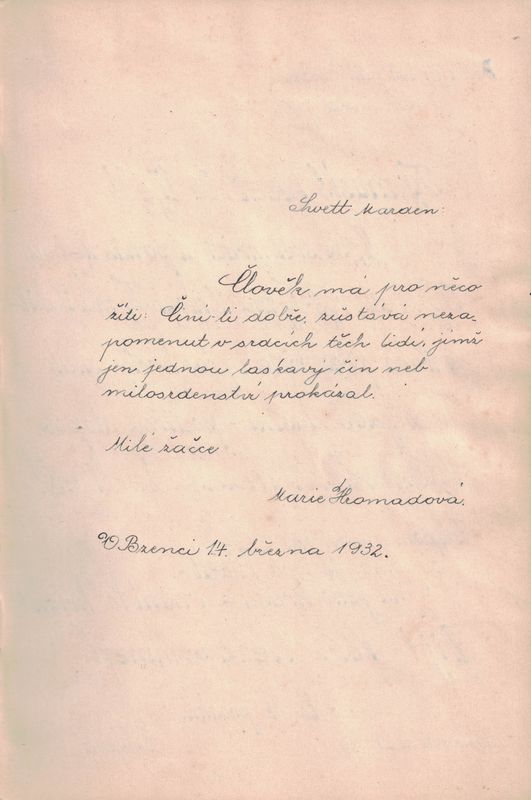 Swett Marden:
Člověk má pro něco
žíti: Činí-li dobře, zůstává neza-
pomenut v srdcích těch lidí, jimž
jen jednou laskavý čin neb
milosrdenství prokázal.
Milé žačce
Marie Hromadová.
V Bzenci 14. března 1932.